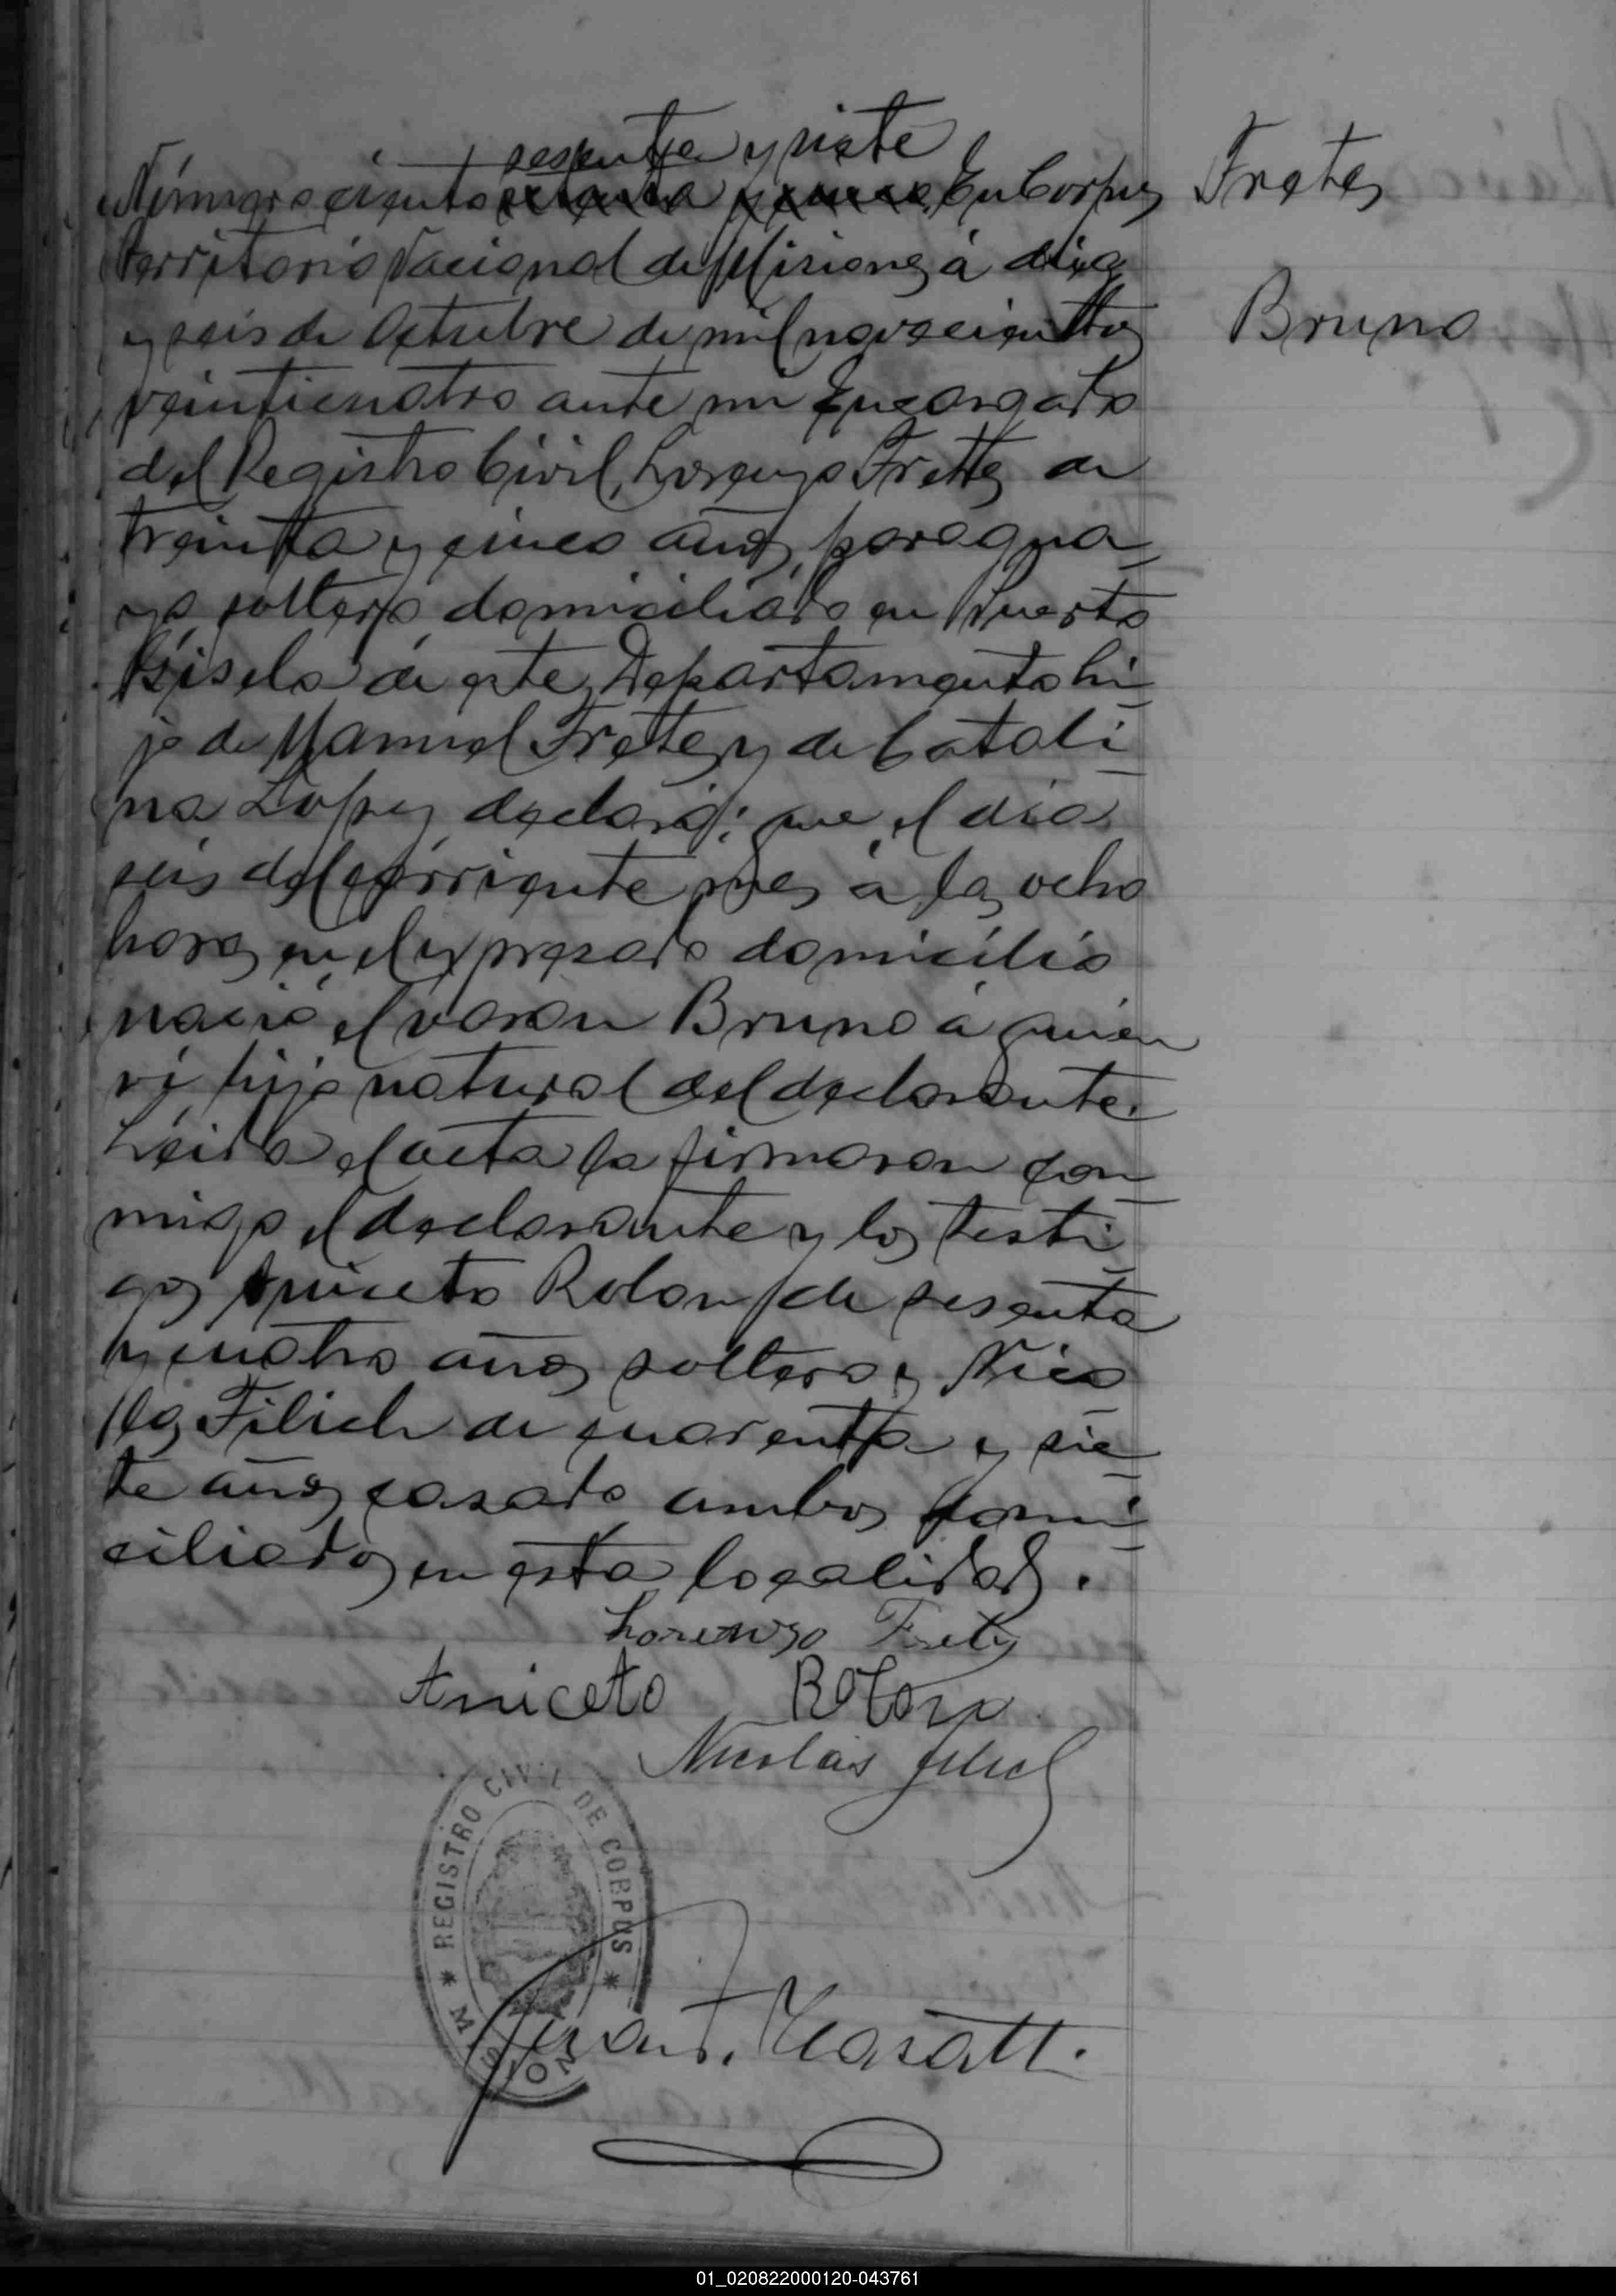 sesenta y siete
Número ciento setenta y cinco. En Corpus
territorio Nacional de Misiones á diez
y seis de Octubre de mil novecientos
veinticuatro ante mi Encargado
del Registro Civil, Lorenzo Fretes de
treinta y cinco años, paragua
yo soltero domiciliado en Puerto
Gisela de este Departamento hi-
jo de Manuel Fretes y de Catali-
na Lopez declaró: que el dia
seis del corriente mes á las ocho
horas en el expresado domicilio
nació el varon Bruno á quien
ví hijo natural del declarante.
Leida el acta la firmaron con-
migo el declarante y los testi-
gos Aniceto Rolon de sesenta
y cuatro años soltero y Nico-
las Filich de cuarenta y sie-
te años casado ambos domi-
ciliados en esta localidad.
Lorenzo Fretes
Aniceto Rolon
Nicolás Filich
* REGISTRO CIVIL DE CORPUS *
MISIONES
Juan T.
Fretes
Bruno
01_020822000120-043761